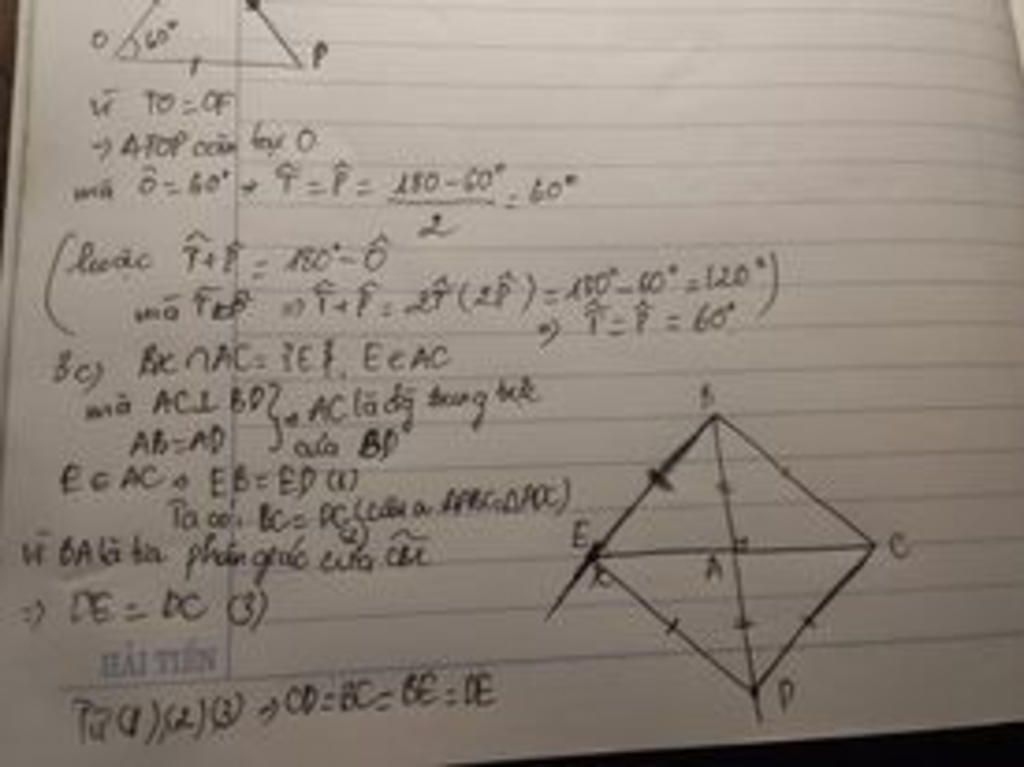 O 60° P
vì TO = OP
→ ΔTOP cân tại O
mà Ô = 60° → T̂ = P̂ = (180 - 60°)/2 = 60°
(hoặc T̂ + P̂ = 180° - Ô
mà T̂ = P̂ => T̂ + P̂ = 2T̂ (2P̂) = 180° - 60° = 120°)
=> T̂ = P̂ = 60°
c) Bx ∩ AC = {E}, E ∈ AC
mà AC ⊥ BD
AB = AD } → AC là đg trung trực của BD
E ∈ AC → EB = ED (1)
Ta có: BC = DC (2) (câu a ΔABC = ΔADC)
vì BA là tia phân giác của
=> DE = DC (3)
HẢI TIẾN
Từ (1), (2) (3) → CD = BC = BE = DE
B
E
A
C
x
D